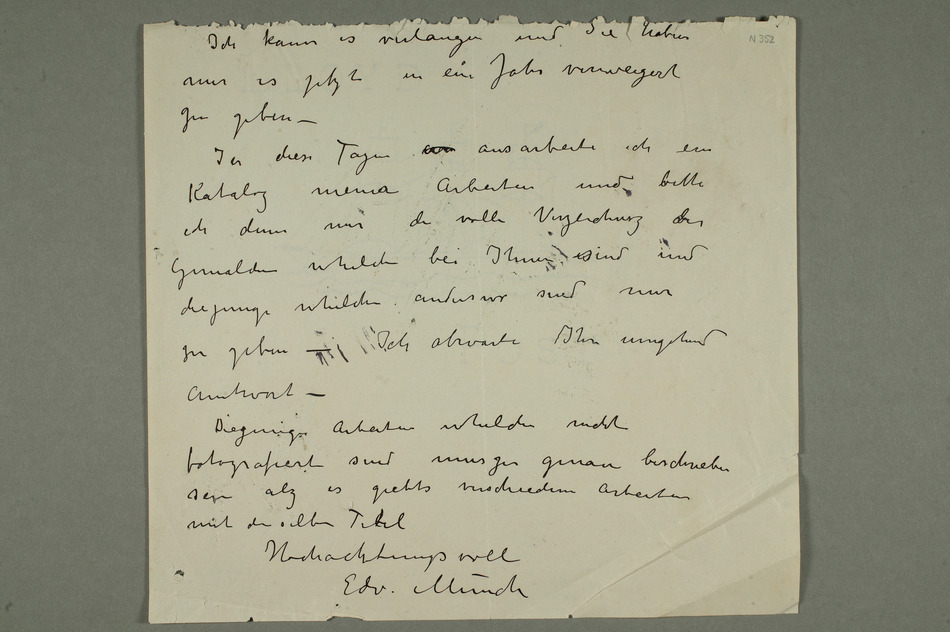 N 352
Ich kann es verlangen und Sie haben
mir es jetzt in ein Jahr verweigert
zu geben –
In diese Tagen ausarbeite ich ein
Katalog meiner Arbeiten und bitte
ich denn mir die volle Verzeichnis der
Gemälden whelche bei Ihnen sind und
diejenige whelche anderswo sind mir
zu geben – Ich abwarte Ihre umgehend
Antwort –
Diejenige Arbeiten whelche nicht
fotografiert sind genau beschrieben
sein es giebts verschiedene Arbeiten
mit die selben Titel
Hochachtungsvoll
Edv. Munch